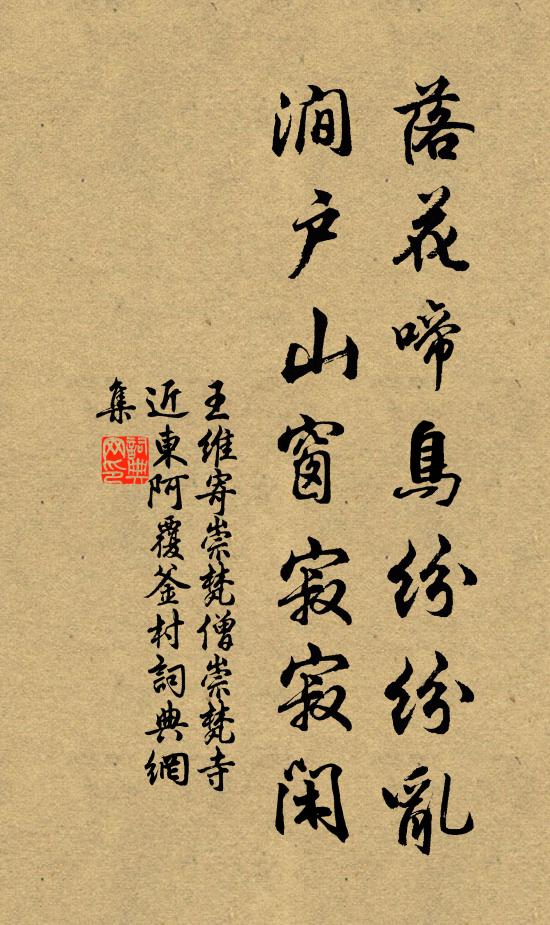 落花啼鳥紛紛亂
澗户山窗寂寂閑
王維寄崇梵僧崇梵寺
近東阿覆釜村詞典網
集
詞典
网印